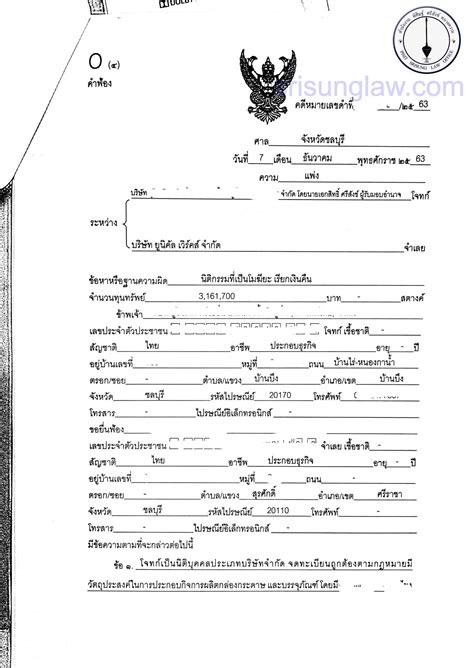 srisunglaw.com
O (๔)
คำฟ้อง
คดีหมายเลขดำที่ /๒๕ 63
ศาล จังหวัดชลบุรี
วันที่ 7 เดือน ธันวาคม พุทธศักราช ๒๕ 63
ความ แพ่ง
บริษัท จำกัด โดยนายเอกสิทธิ์ ศรีสังข์ ผู้รับมอบอำนาจ โจทก์
ระหว่าง
บริษัท ยูนิคัล เวิร์คส์ จำกัด จำเลย
ข้อหาหรือฐานความผิด นิติกรรมที่เป็นโมฆียะ เรียกเงินคืน
จำนวนทุนทรัพย์ 3,161,700 บาท - สตางค์
ข้าพเจ้า
เลขประจำตัวประชาชน โจทก์ เชื้อชาติ -
สัญชาติ ไทย อาชีพ ประกอบธุรกิจ อายุ - ปี
อยู่บ้านเลขที่ หมู่ที่ - ถนน บ้านบึง-หนองกาน้ำ
ตรอก/ซอย - ตำบล/แขวง บ้านบึง อำเภอ/เขต บ้านบึง
จังหวัด ชลบุรี รหัสไปรษณีย์ 20170 โทรศัพท์
โทรสาร - ไปรษณีย์อิเล็กทรอนิกส์ -
ขอยื่นฟ้อง
เลขประจำตัวประชาชน จำเลย เชื้อชาติ -
สัญชาติ ไทย อาชีพ ประกอบธุรกิจ อายุ - ปี
อยู่บ้านเลขที่ หมู่ที่ ถนน -
ตรอก/ซอย - ตำบล/แขวง สุรศักดิ์ อำเภอ/เขต ศรีราชา
จังหวัด ชลบุรี รหัสไปรษณีย์ 20110 โทรศัพท์ -
โทรสาร - ไปรษณีย์อิเล็กทรอนิกส์ -
มีข้อความตามที่จะกล่าวต่อไปนี้
ข้อ ๑. โจทก์เป็นนิติบุคคลประเภทบริษัทจำกัด จดทะเบียนถูกต้องตามกฎหมายมี
วัตถุประสงค์ในการประกอบกิจการผลิตกล่องกระดาษ และบรรจุภัณฑ์ โดยมี